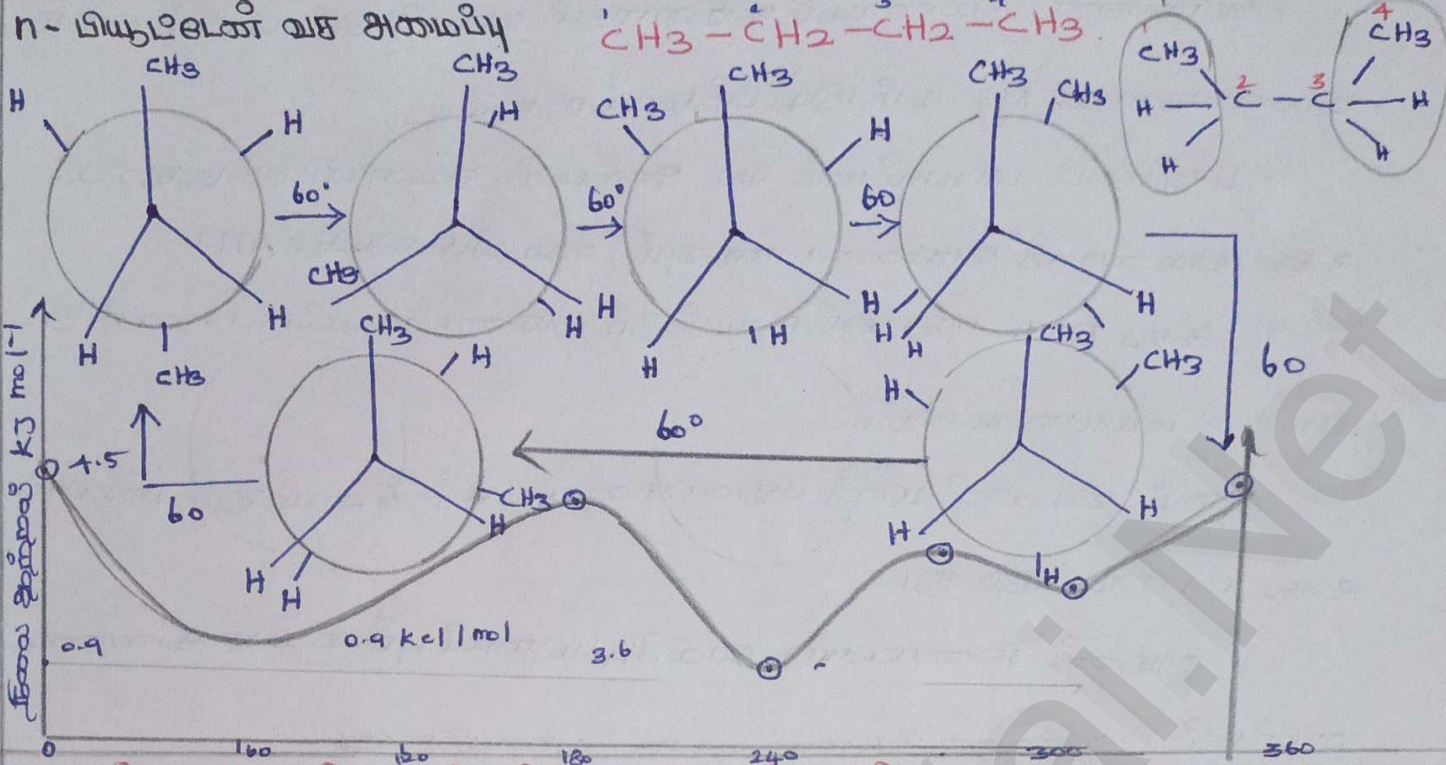 n- பியூட்டேன் வச அமைப்பு
1 2 3 4
CH3 - CH2 - CH2 - CH3.
CH3 4 CH3
H 2 C - 3 C H
H H
CH3 H H H CH3
60°
CH3 H CH3 H H
60°
CH3 H CH3 H H H
60
CH3 CH3 H H H CH3
60
CH3 CH3 H H H H
60°
CH3 H CH3 H H H
60
நிலை ஆற்றல் KJ mol-1
4.5
0.9
0.9 kcl/mol
3.6
0 160 120 180 240 300 360
ai.Net